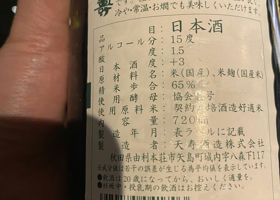 冷や・常温・お燗でも美味しくいただけます
品目 日本酒
アルコール分 15度
酸度 1.5
日本酒度 +3
原材料名 米(国産)、米麹(国産米)
精米歩合 65%
使用酵母 協会
使用原料米 契約 酒造好適米
内容量 720
製造年月 ラベルに記載
製造者 天寿酒造株式会社
秋田県由利本荘市矢島町城内字八森下117
●飲酒は20歳になってから。おいしく適量を。
●妊娠中・授乳期の飲酒はお控えください。